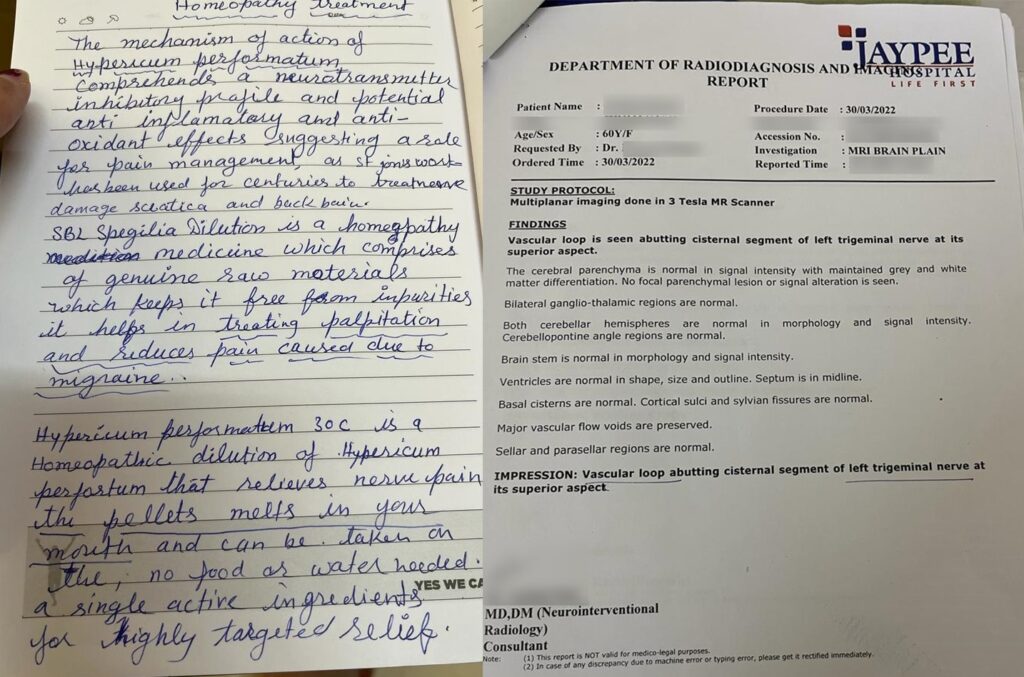 Homeopathy Treatment
The mechanism of action of
Hypericum performatum
comprehends a neurotransmitter
inhibitory profile and potential
anti inflamatory and anti-
oxidant effects suggesting a role
for pain management, as st jons work
has been used for centuries to treat nerve
damage sciatica and back pain.
SBL Spegilia Dilution is a homeopathy
medicine which comprises
of genuine raw materials
which keeps it free from impurities
it helps in treating palpitation
and reduces pain caused due to
migraine..
Hypericum performatum 30c is a
Homeopathic dilution of Hypericum
perfortum that relieves nerve pain
the pellets melts in your
mouth and can be taken on
the, no food or water needed.
YES WE CA
a single active ingredients
for highly targeted relief.
JAYPEE
HOSPITAL
LIFE FIRST
DEPARTMENT OF RADIODIAGNOSIS AND IMAGING
REPORT
Patient Name :
Procedure Date : 30/03/2022
Age/Sex : 60Y/F
Accession No. :
Requested By : Dr.
Investigation : MRI BRAIN PLAIN
Ordered Time : 30/03/2022
Reported Time :
STUDY PROTOCOL:
Multiplanar imaging done in 3 Tesla MR Scanner
FINDINGS
Vascular loop is seen abutting cisternal segment of left trigeminal nerve at its
superior aspect.
The cerebral parenchyma is normal in signal intensity with maintained grey and white
matter differentiation. No focal parenchymal lesion or signal alteration is seen.
Bilateral ganglio-thalamic regions are normal.
Both cerebellar hemispheres are normal in morphology and signal intensity.
Cerebellopontine angle regions are normal.
Brain stem is normal in morphology and signal intensity.
Ventricles are normal in shape, size and outline. Septum is in midline.
Basal cisterns are normal. Cortical sulci and sylvian fissures are normal.
Major vascular flow voids are preserved.
Sellar and parasellar regions are normal.
IMPRESSION: Vascular loop abutting cisternal segment of left trigeminal nerve at
its superior aspect.
MD,DM (Neurointerventional
Radiology)
Consultant
Note: (1) This report is NOT valid for medico-legal purposes.
(2) In case of any discrepancy due to machine error or typing error, please get it rectified immediately.